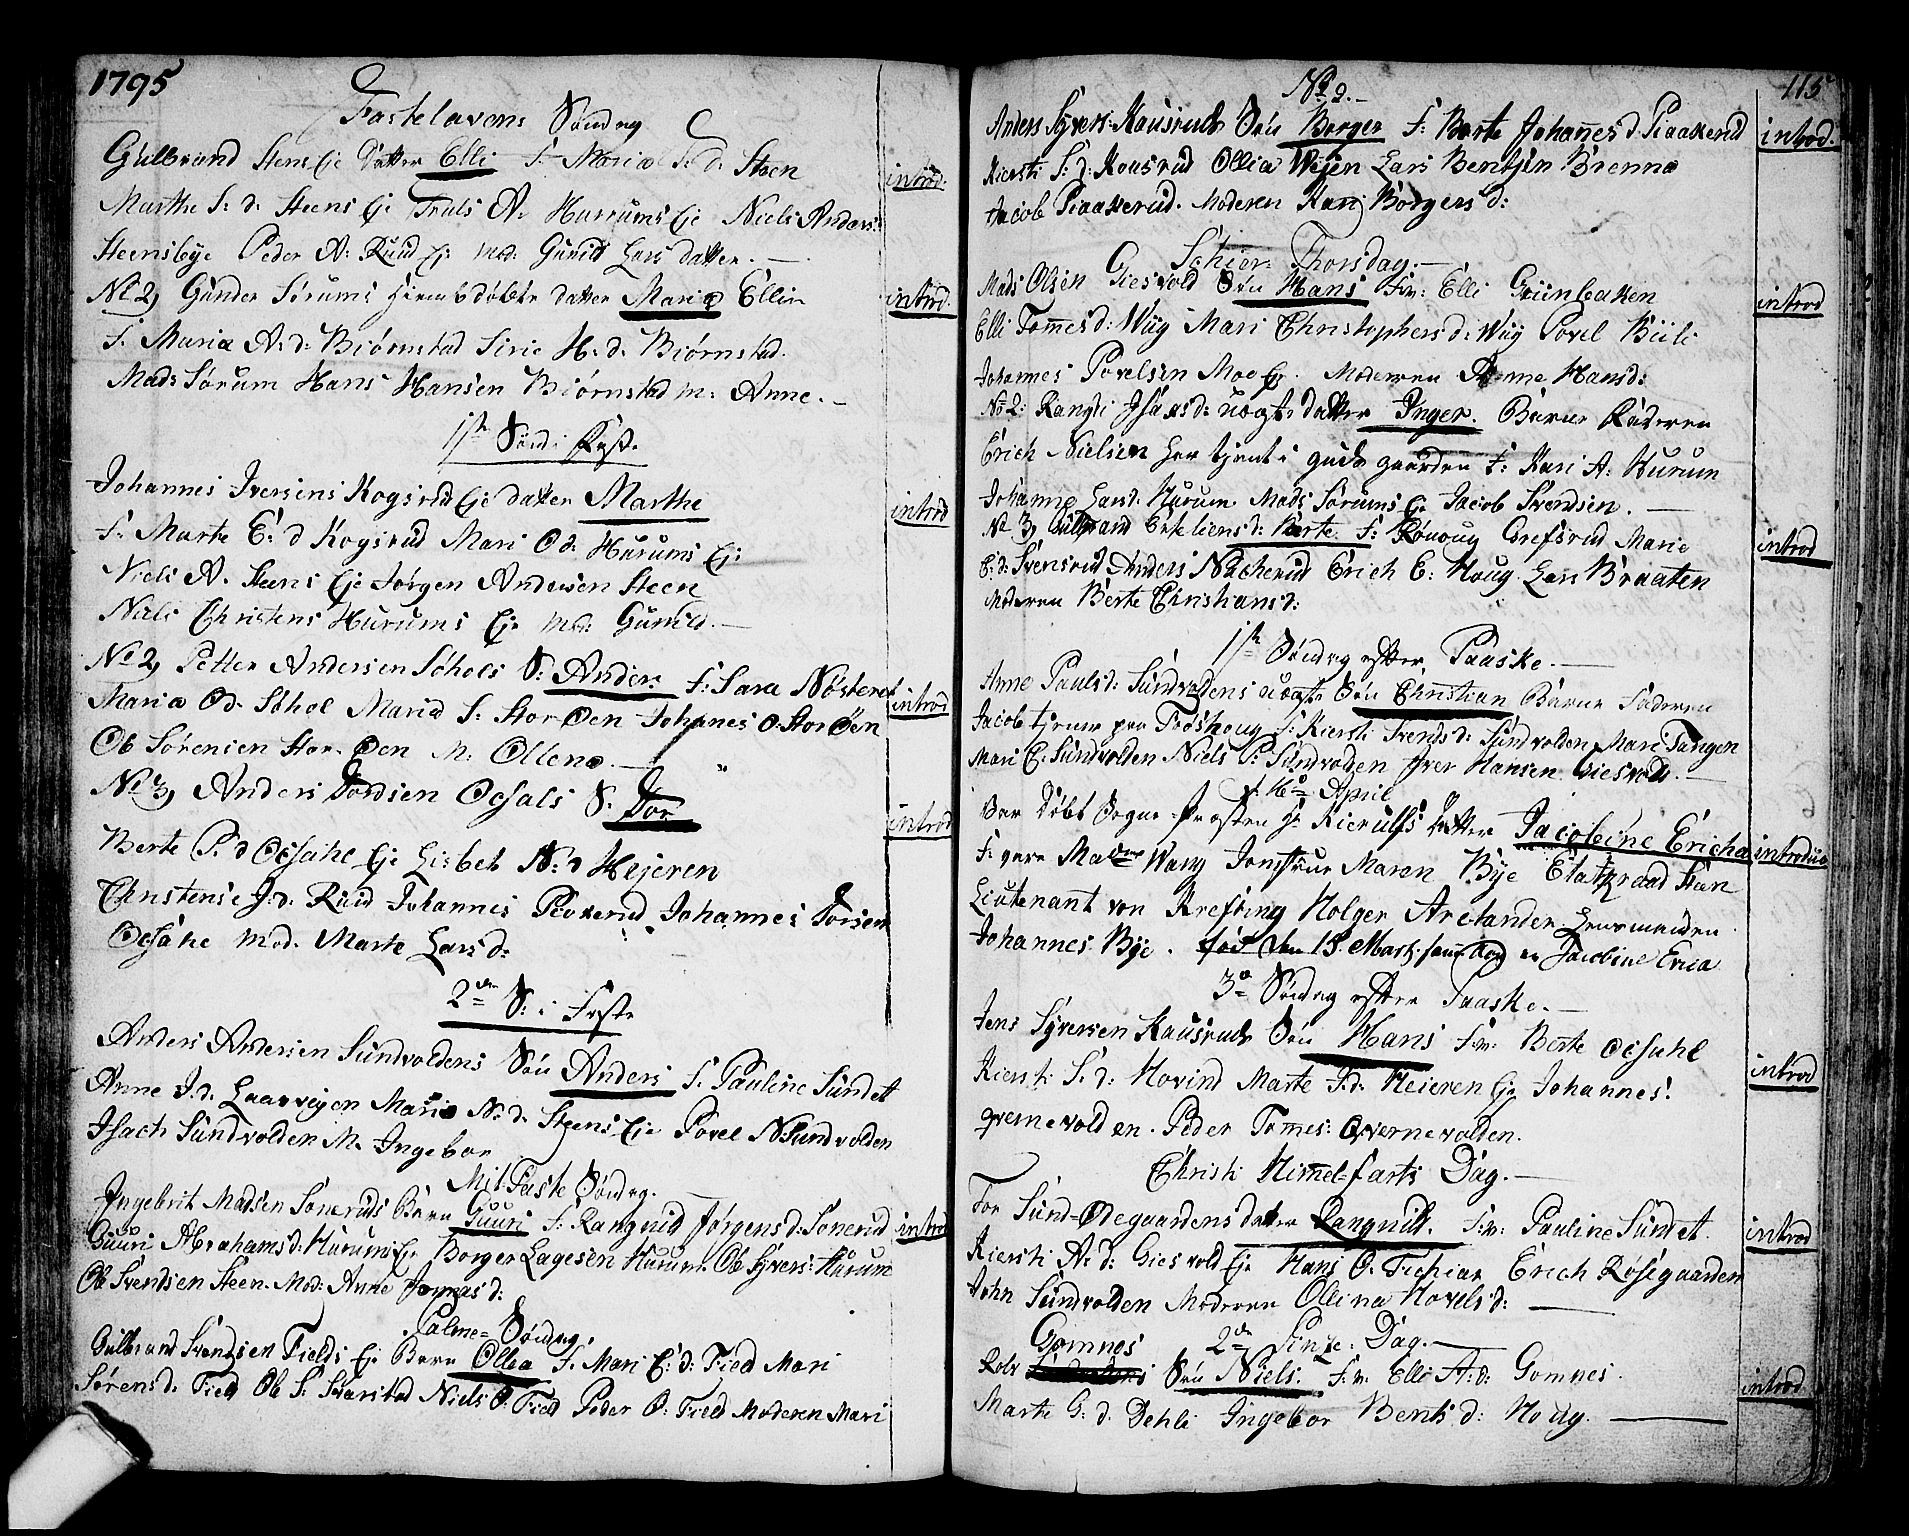 1795
Fastelavens Søndag
Gulbrand Steens Eje Datter Elli F. Maria S. d. Steen
introd.
Marthe S: d. Steens Eje Truls A. Hurums Eje Niels Anders:
Steensbye Peder A: Ruud Ej: mod: Gunild Lars datter. —
No 2, Gunder Sørums hiemedøbte datter Maria Ellin
introd.
F. Maria A: d: Biørnstad Sirie H. d. Biørnstad.
Mads Sørum Hans Hansen Biørnstad m: Anne. —
1ste Sønd: i Faste
Johannes Iversens Kogsrud Eje datter Marthe
introd
F. Marte E: d Kogsrud Mari O d: Hurums Ej:
Niels A. Steens Eje Jørgen Andersen Steen
Niels Christens Hurums Eje mod: Gunild. —
No 2, Petter Andersen Søhols S: Anders F: Sara Nøsteret
introd
Maria O d. Søhol Maria S: Stor Øen Johanes O. Stor Øen
Ob Sørensen Stor Øen M: Ollena. —
No 3, Anders Tordsen Oesals S. Tor
introd
Berte P. d Oesahl Eje Lisbet N: d Heieren
Christense J: d. Ruud Johannes Piokerud Johannes Torsen
Oesahl mod. Marte Lars d:
2den S: i Faste
Anders Andersen Sundvoldens Søn Anders F. Pauline Sundet
Anne J. d. Laarvigen Maria N: d. Steens Eje Povel N. Sundvolden
Isach Sundvolden M. Ingebor
Mit-Faste Søndag.
Ingebrit Madsen Soneruds Barn Guuri F. Rangnid Jørgens d: Sonerud
introd
Guuri Abrahams d: Hurums Eje Borger Lagesen Hurum Ob Syvers: Hurum
Ob Svendsen Steen. Mod: Anne Jonas d:
Palme-Søndag.
Gulbrand Svendsen Fields Eje Barn Ollea F. Mari E: d: Field Mari
Sørens d. Field Ob S. Svarstad Niels O: Field Peder O: Field Moderen Mari
115
No 2. —
Anders Syvers: Kousruds Søn Borger F. Berte Johannes d. Piaakerud
introd.
Kiersti S: d: Kousrud Ollia Weien Lars Bentsen Brenna
Jacob Piaakerud. Moderen Kari Borgers d:
Schier: Thorsdag. —
Mads Olsen Giesvold Søn Hans F. v: Elli Grünbaken
introd
Elli Tommes d: Wiig Mari Christophers d: Wiig Povel Biili
Johannes Povelsen Moe Ej. Moderen Anne Hans d:
No 2: Rangdi Isaas d: uægte datter Inger. Barne Faderen
Erich Nielsen her tjent i guds gaarden F: Kari A: Hurum
Johanne Lars d. Hurum Mads Sørums Ej Jacob Svendsen. —
No 3, Gulbrand Erkeliens d: Berte F: Rønoug Grefsrud Marie
introd
E: d: Svensrud Anders Nacherud Erich E: Houg Lars Braaten
Moderen Berte Christians d:
1ste Søndag efter Paaske. —
Anne Pauls d: Sundvoldens uægte Søn Christian Barne Faderen
Jacob tjener paa Fodshoug F. Kiersti Svends d: Sundvolden Mari Tangen
Mari E. Sundvolden Niels P. Sundvolden Iver Hansen Giesvold. —
d. 16de April
Var døbt Sogne-Præsten Hr Kierulfs datter Jacobine Ericha
introdus
F. vare Madme Wang Jomfrue Maren Bye Etatzraad Steen
Lieutenant von Krefting Holger Arctander Lensmanden
Johannes Bye. fød den 15. Marts samme Aar er Jacobine Erica
3de Søndag efter Paaske. —
Jens Syversen Kausruds Søn Hans F. v: Berte Oesahl
introd
Kiersti S. d: Hovind Marte J. d. Heieren Eje Johannes:
qvernevolden. Peder Tommes: Qvernevolden.
Christi Himmel-farts Dag. —
Tor Sund-Ødegaardens datter Rangnild. F. v: Pauline Sundet.
introd
Kiersti A: d: Giesvold Eje Hans O. Fichiar Erich Røsegaarden
John Sundvolden Moderen Ollina Hovels d: —
Gomnes 2den Pintze: Dag. —
Rolv Søn Niels. F. v. Elli A: d: Gomnes.
introd
Marte G: d. Dehli Ingebor Bents d: Houg. —